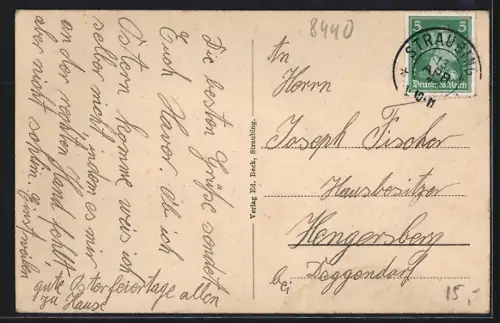 8440
Die besten Grüße sendet
Euch Xaver. Ob ich
Ostern komme weis ich
selber nicht, indem es mir
an der rechten Hand fehlt,
aber nicht schlim. Einstweilen
gute Osterfeiertage allen
zu Hause
Verlag Ed. Beck, Straubing.
5 5
Deutsches Reich
STRAUBING
13
APR
An
Herrn
Joseph Fischer
Hausbesitzer
Hengersberg
bei Deggendorf
15,-